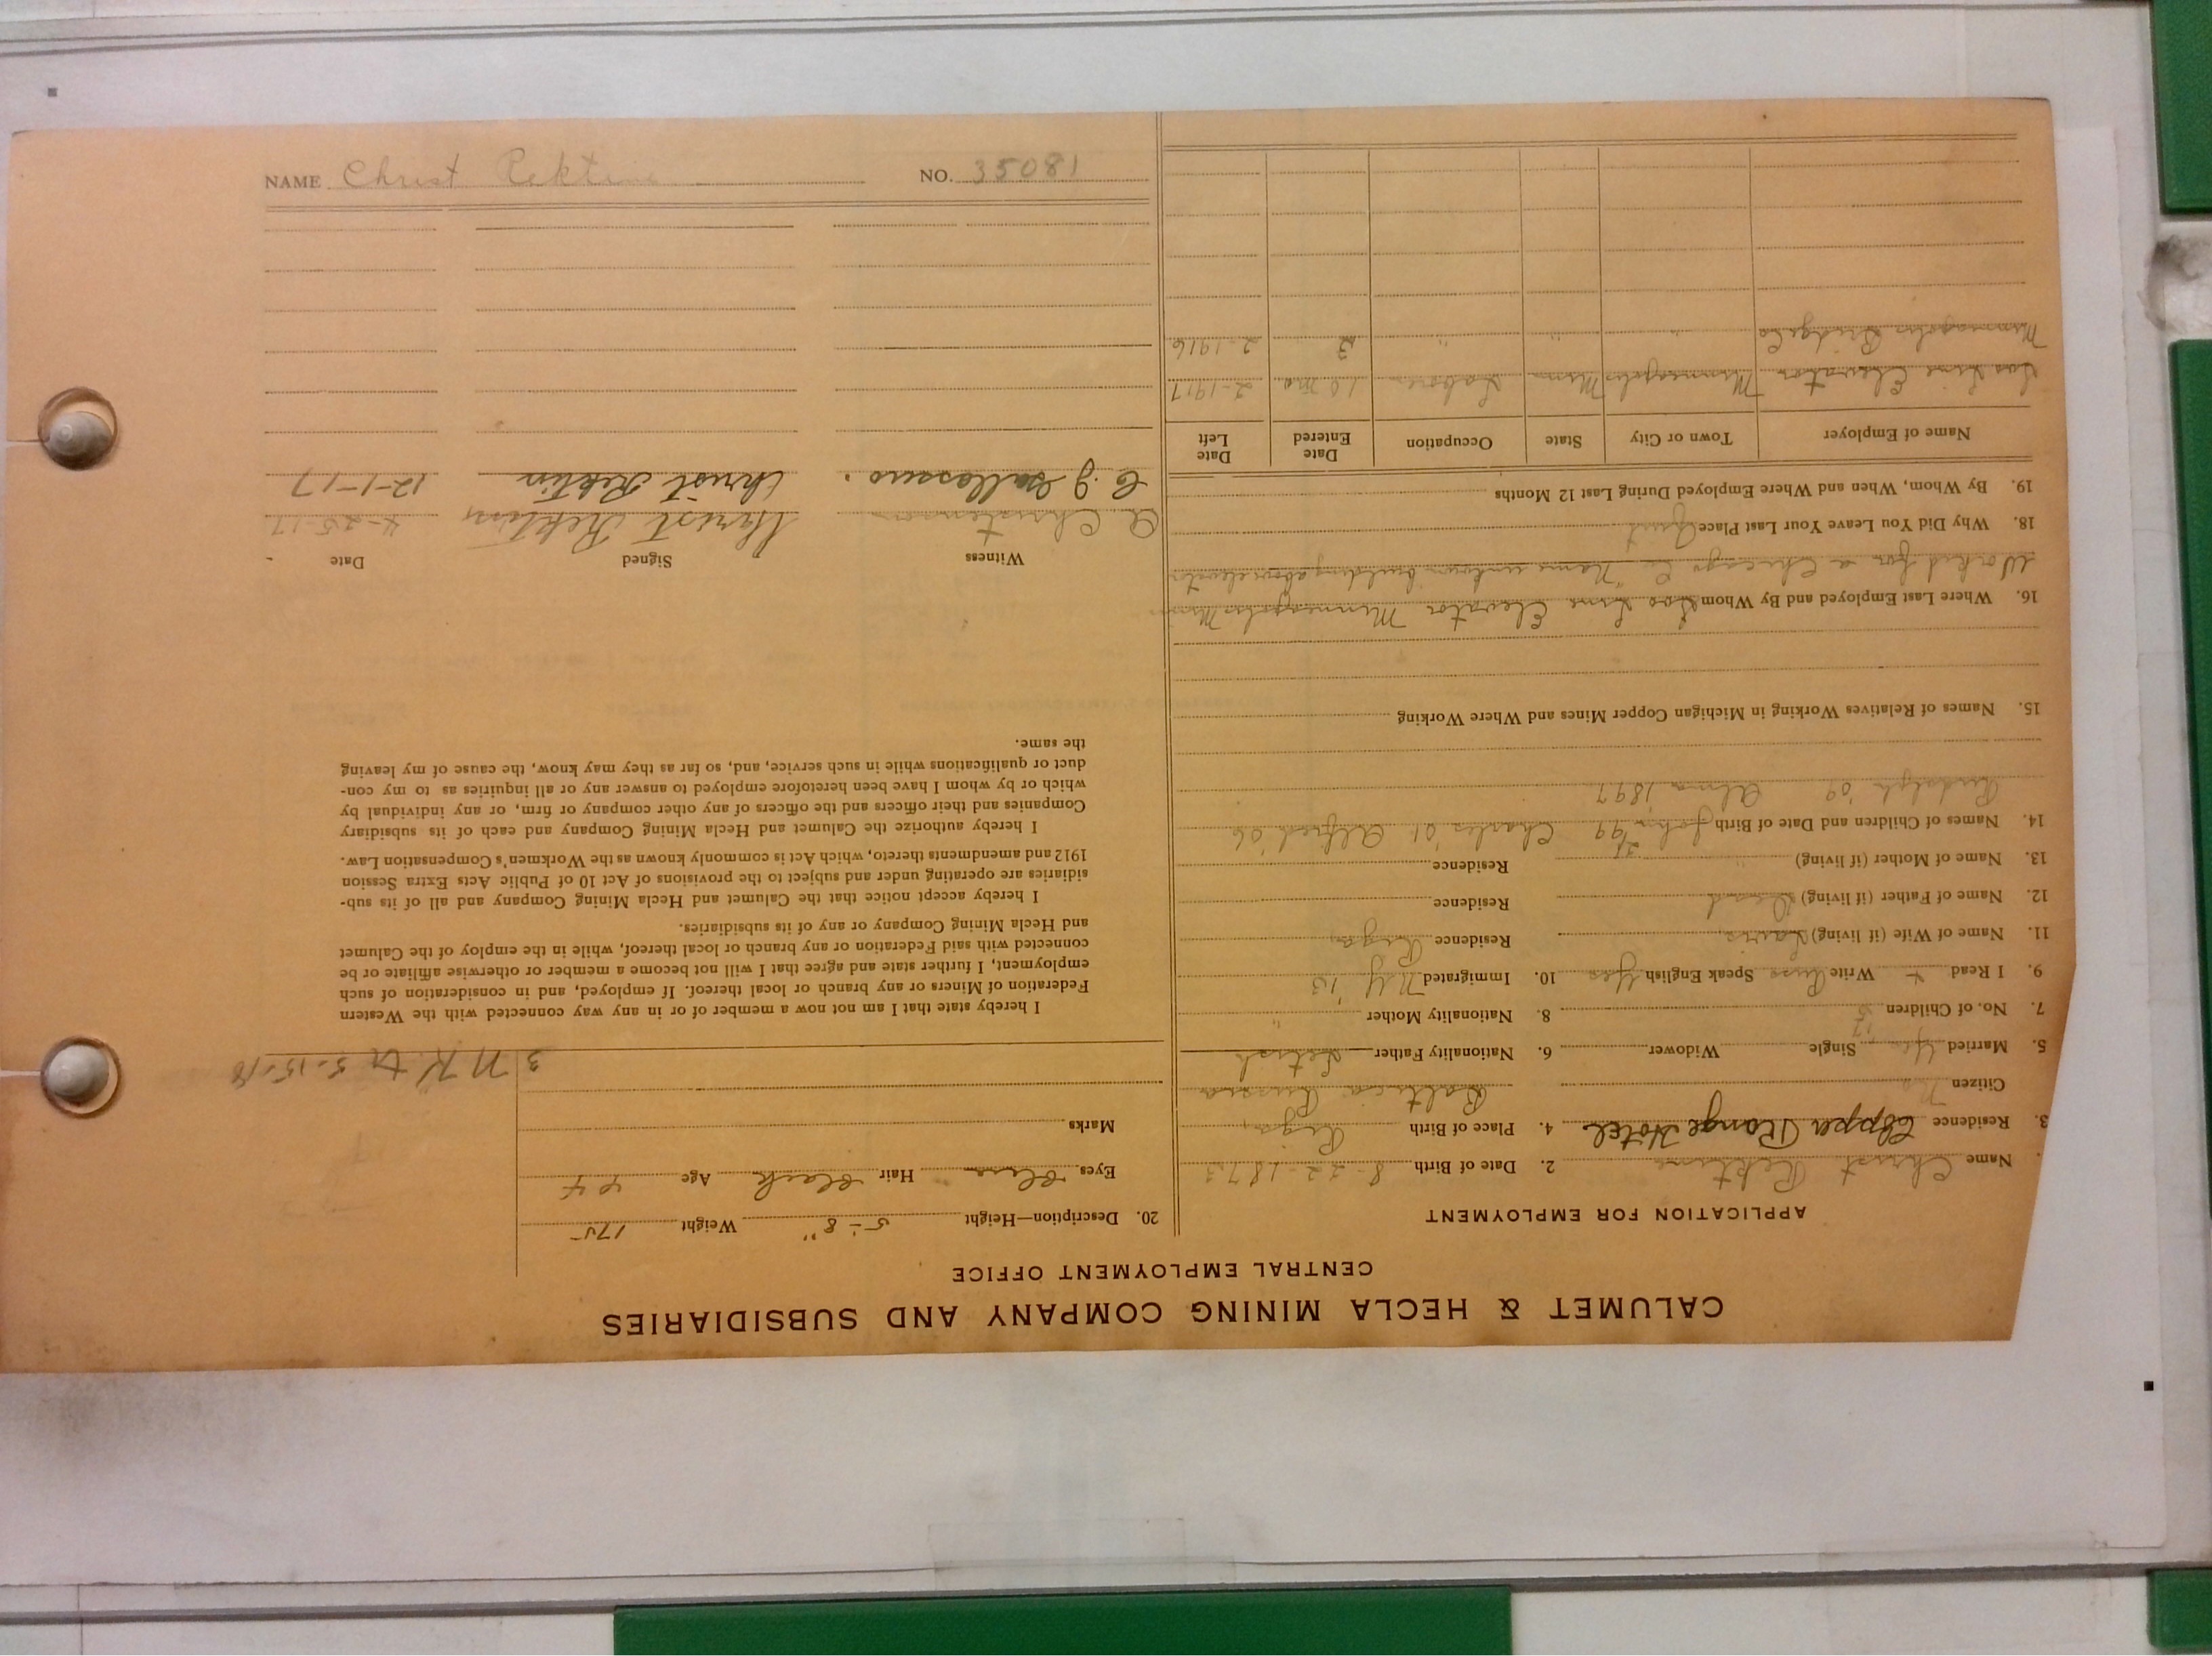 CALUMET & HECLA MINING COMPANY AND SUBSIDIARIES
CENTRAL EMPLOYMENT OFFICE
APPLICATION FOR EMPLOYMENT
Name Christ Rektine 2. Date of Birth 8-22-1873
3. Residence Copper Range Hotel 4. Place of Birth Riga,
Citizen No Baltica Russia
5. Married Yes Single Widower 6. Nationality Father Lettish
7. No. of Children 5 8. Nationality Mother "
9. I Read + Write Russ Speak English Yes 10. Immigrated N.Y. '13
11. Name of Wife (if living) Residence Riga,
12. Name of Father (if living) Dead Residence
13. Name of Mother (if living) " Residence
14. Names of Children and Date of Birth John '99 Charles '01 Alfred '06
Rudolph '09 Alma 1897
15. Names of Relatives Working in Michigan Copper Mines and Where Working
16. Where Last Employed and By Whom Soo Line Elevator Minneapolis Minn
Worked for a Chicago Co. Name unknown building above elevator
18. Why Did You Leave Your Last Place Quit
19. By Whom, When and Where Employed During Last 12 Months
Name of Employer Town or City State Occupation Date Entered Date Left
Soo Line Elevator Minneapolis Minn Labor 10 mo 2-1917
Minneapolis Bridge Co " " " 2 2-1916
20. Description—Height 5'-8" Weight 175
Eyes Blue Hair Black Age 44
Marks
3 N.K. tr 5-15-18
I hereby state that I am not now a member of or in any way connected with the Western
Federation of Miners or any branch or local thereof. If employed, and in consideration of such
employment, I further state and agree that I will not become a member or otherwise affiliate or be
connected with said Federation or any branch or local thereof, while in the employ of the Calumet
and Hecla Mining Company or any of its subsidiaries.
I hereby accept notice that the Calumet and Hecla Mining Company and all of its sub-
sidiaries are operating under and subject to the provisions of Act 10 of Public Acts Extra Session
1912 and amendments thereto, which Act is commonly known as the Workmen's Compensation Law.
I hereby authorize the Calumet and Hecla Mining Company and each of its subsidiary
Companies and their officers and the officers of any other company or firm, or any individual by
which or by whom I have been heretofore employed to answer any or all inquiries as to my con-
duct or qualifications while in such service, and, so far as they may know, the cause of my leaving
the same.
Witness Signed Date
A Christenson Christ Rektin 4-25-17
C. J. Christ Rektin 12-1-17
NAME Christ Rektine NO. 35081